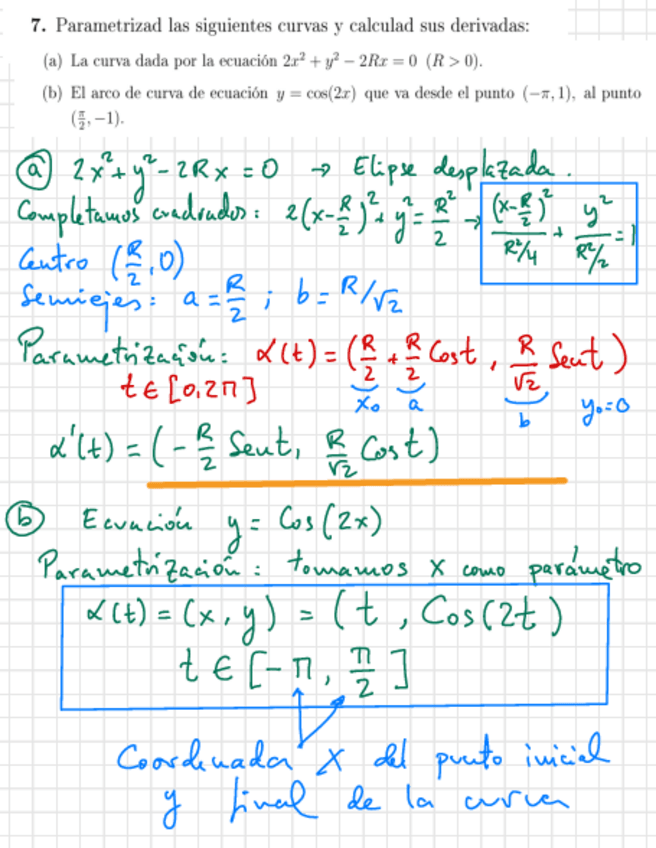 7. Parametrizad las siguientes curvas y calculad sus derivadas:
(a) La curva dada por la ecuación 2x² + y² − 2Rx = 0 (R > 0).
(b) El arco de curva de ecuación y = cos(2x) que va desde el punto (−π, 1), al punto
(π/2, −1).
ⓐ 2x² + y² − 2Rx = 0 → Elipse desplazada.
Completamos cuadrados: 2(x − R/2)² + y² = R²/2 → (x − R/2)²/(R²/4) + y²/(R²/2) = 1
Centro (R/2, 0)
Semiejes: a = R/2 ; b = R/√2
Parametrización: α(t) = (R/2 + R/2 Cos t, R/√2 Sen t)
t ∈ [0, 2π] x₀ a b y₀=0
α'(t) = (− R/2 Sen t, R/√2 Cos t)
ⓑ Ecuación y = Cos(2x)
Parametrización: tomamos x como parámetro
α(t) = (x, y) = (t, Cos(2t)
t ∈ [−π, π/2]
Coordenada X del punto inicial
y final de la curva